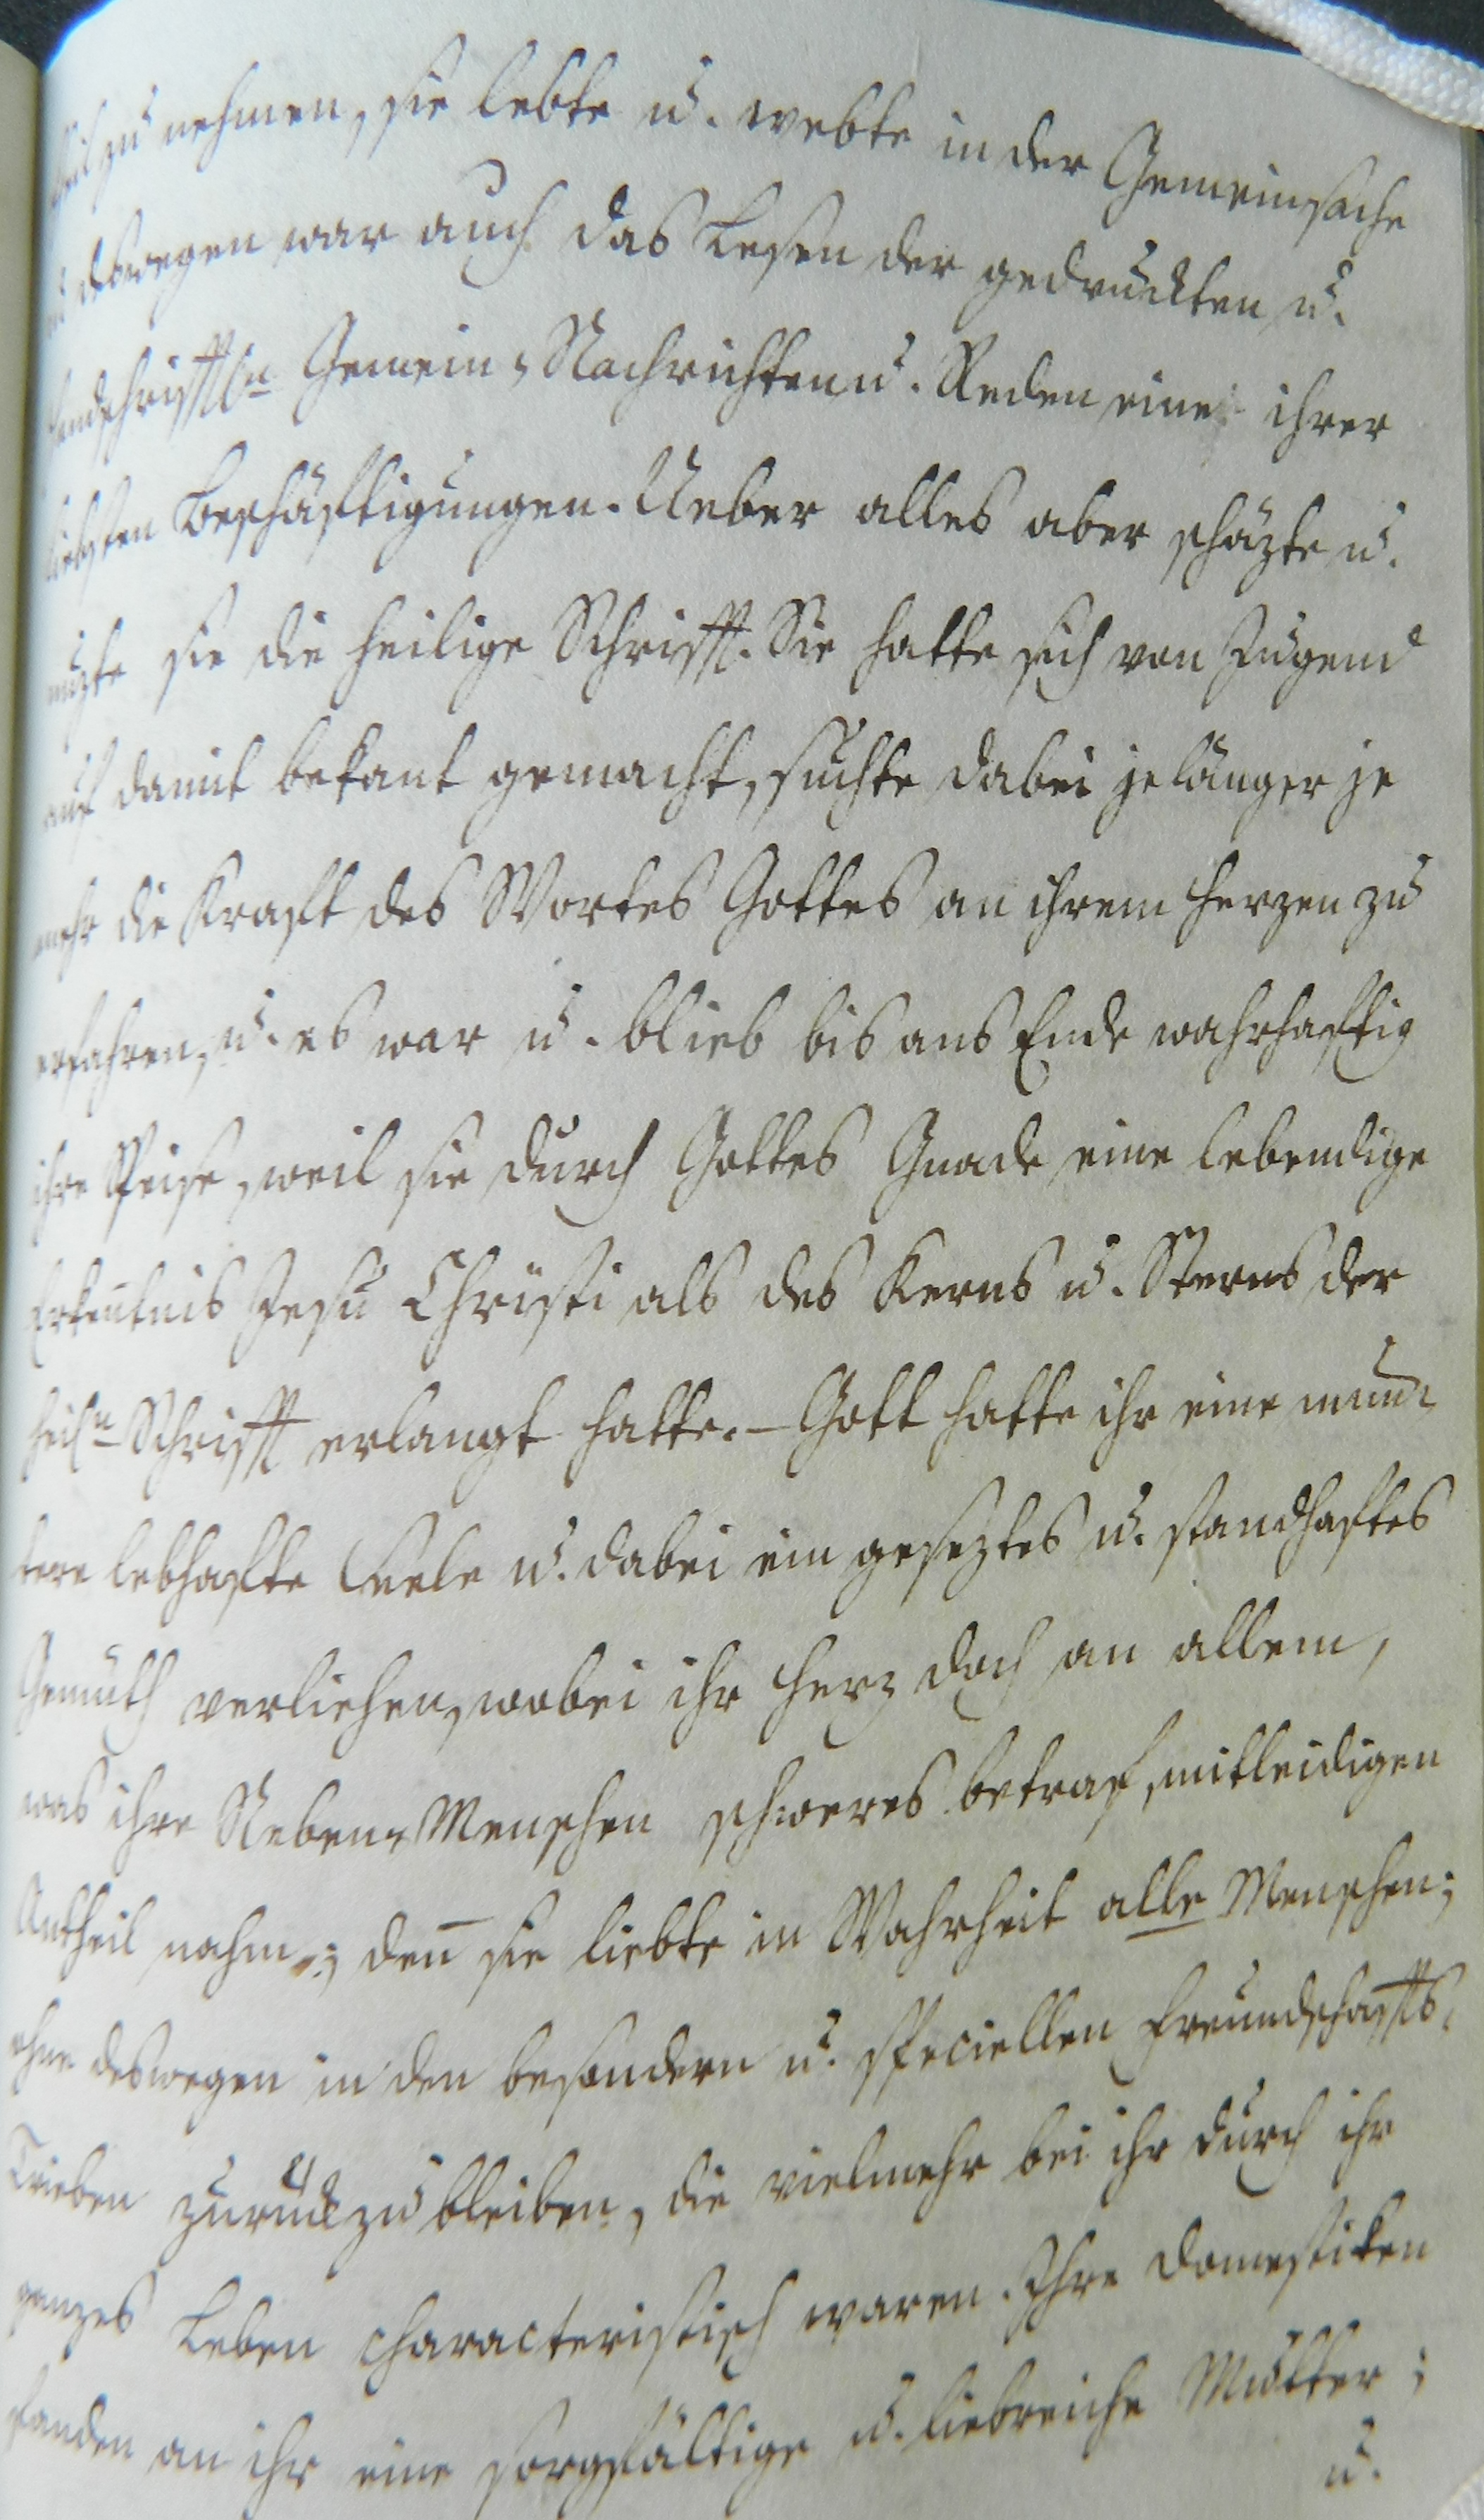 theil zu nehmen, sie lebte u. webte in der Gemeinsache
u. deswegen war auch das Lesen der gedruckten u.
handschrifftln Gemein-Nachrichten u. Reden eine ihrer
liebsten Beschäftigungen. Ueber alles aber schäzte u.
nuzte sie die heilige Schrifft. Sie hatte sich von Jugend
auf damit bekant gemacht, suchte dabei je länger je
mehr die Kraft des Wortes Gottes an ihrem Herzen zu
erfahren, u. es war u. blieb bis ans Ende wahrhaftig
ihre Speise, weil sie durch Gottes Gnade eine lebendige
Erkentnis Jesu Christi als des Kerns u. Sterns der
heiln Schrifft erlangt hatte. – Gott hatte ihr eine mun-
tere lebhafte Seele u. dabei ein geseztes u. standhaftes
Gemüth verliehen, wobei ihr Herz doch an allem,
was ihre Neben-Menschen schweres betraf, mitleidigen
Antheil nahm; den̄ sie liebte in Wahrheit alle Menschen;
ohne deswegen in den besondern u. speciellen Freundschaffts-
Trieben zurückzubleiben, die vielmehr bei ihr durch ihr
ganzes Leben characteristisch waren. Ihre Domestiken
fanden an ihr eine sorgfältige u. liebreiche Mutter;
u.